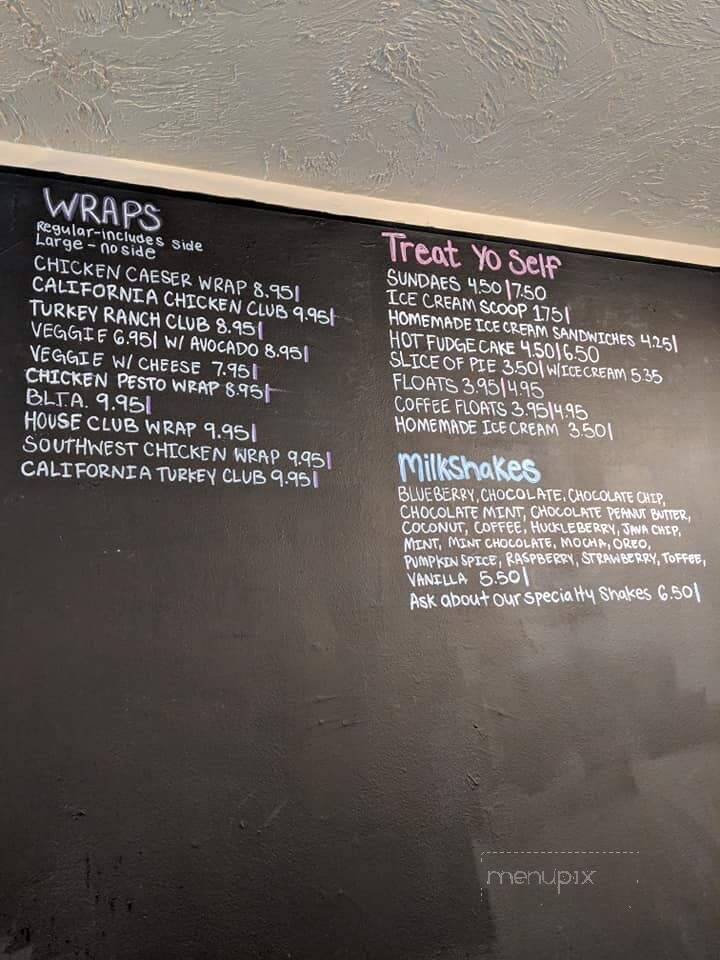 WRAPS
Regular-includes side
Large - no side
CHICKEN CAESER WRAP 8.95|
CALIFORNIA CHICKEN CLUB 9.95|
TURKEY RANCH CLUB 8.95|
VEGGIE 6.95| W/ AVOCADO 8.95|
VEGGIE W/ CHEESE 7.95|
CHICKEN PESTO WRAP 8.95|
B.L.T.A. 9.95|
HOUSE CLUB WRAP 9.95|
SOUTHWEST CHICKEN WRAP 9.95|
CALIFORNIA TURKEY CLUB 9.95|
Treat Yo Self
SUNDAES 4.50|7.50
ICE CREAM SCOOP 1.75|
HOMEMADE ICE CREAM SANDWICHES 4.25|
HOT FUDGE CAKE 4.50|6.50
SLICE OF PIE 3.50| W/ICE CREAM 5.35
FLOATS 3.95|4.95
COFFEE FLOATS 3.95|4.95
HOMEMADE ICE CREAM 3.50|
Milkshakes
BLUEBERRY, CHOCOLATE, CHOCOLATE CHIP,
CHOCOLATE MINT, CHOCOLATE PEANUT BUTTER,
COCONUT, COFFEE, HUCKLEBERRY, JAVA CHIP,
MINT, MINT CHOCOLATE, MOCHA, OREO,
PUMPKIN SPICE, RASPBERRY, STRAWBERRY, TOFFEE,
VANILLA 5.50|
Ask about our specialty shakes 6.50|
menupix